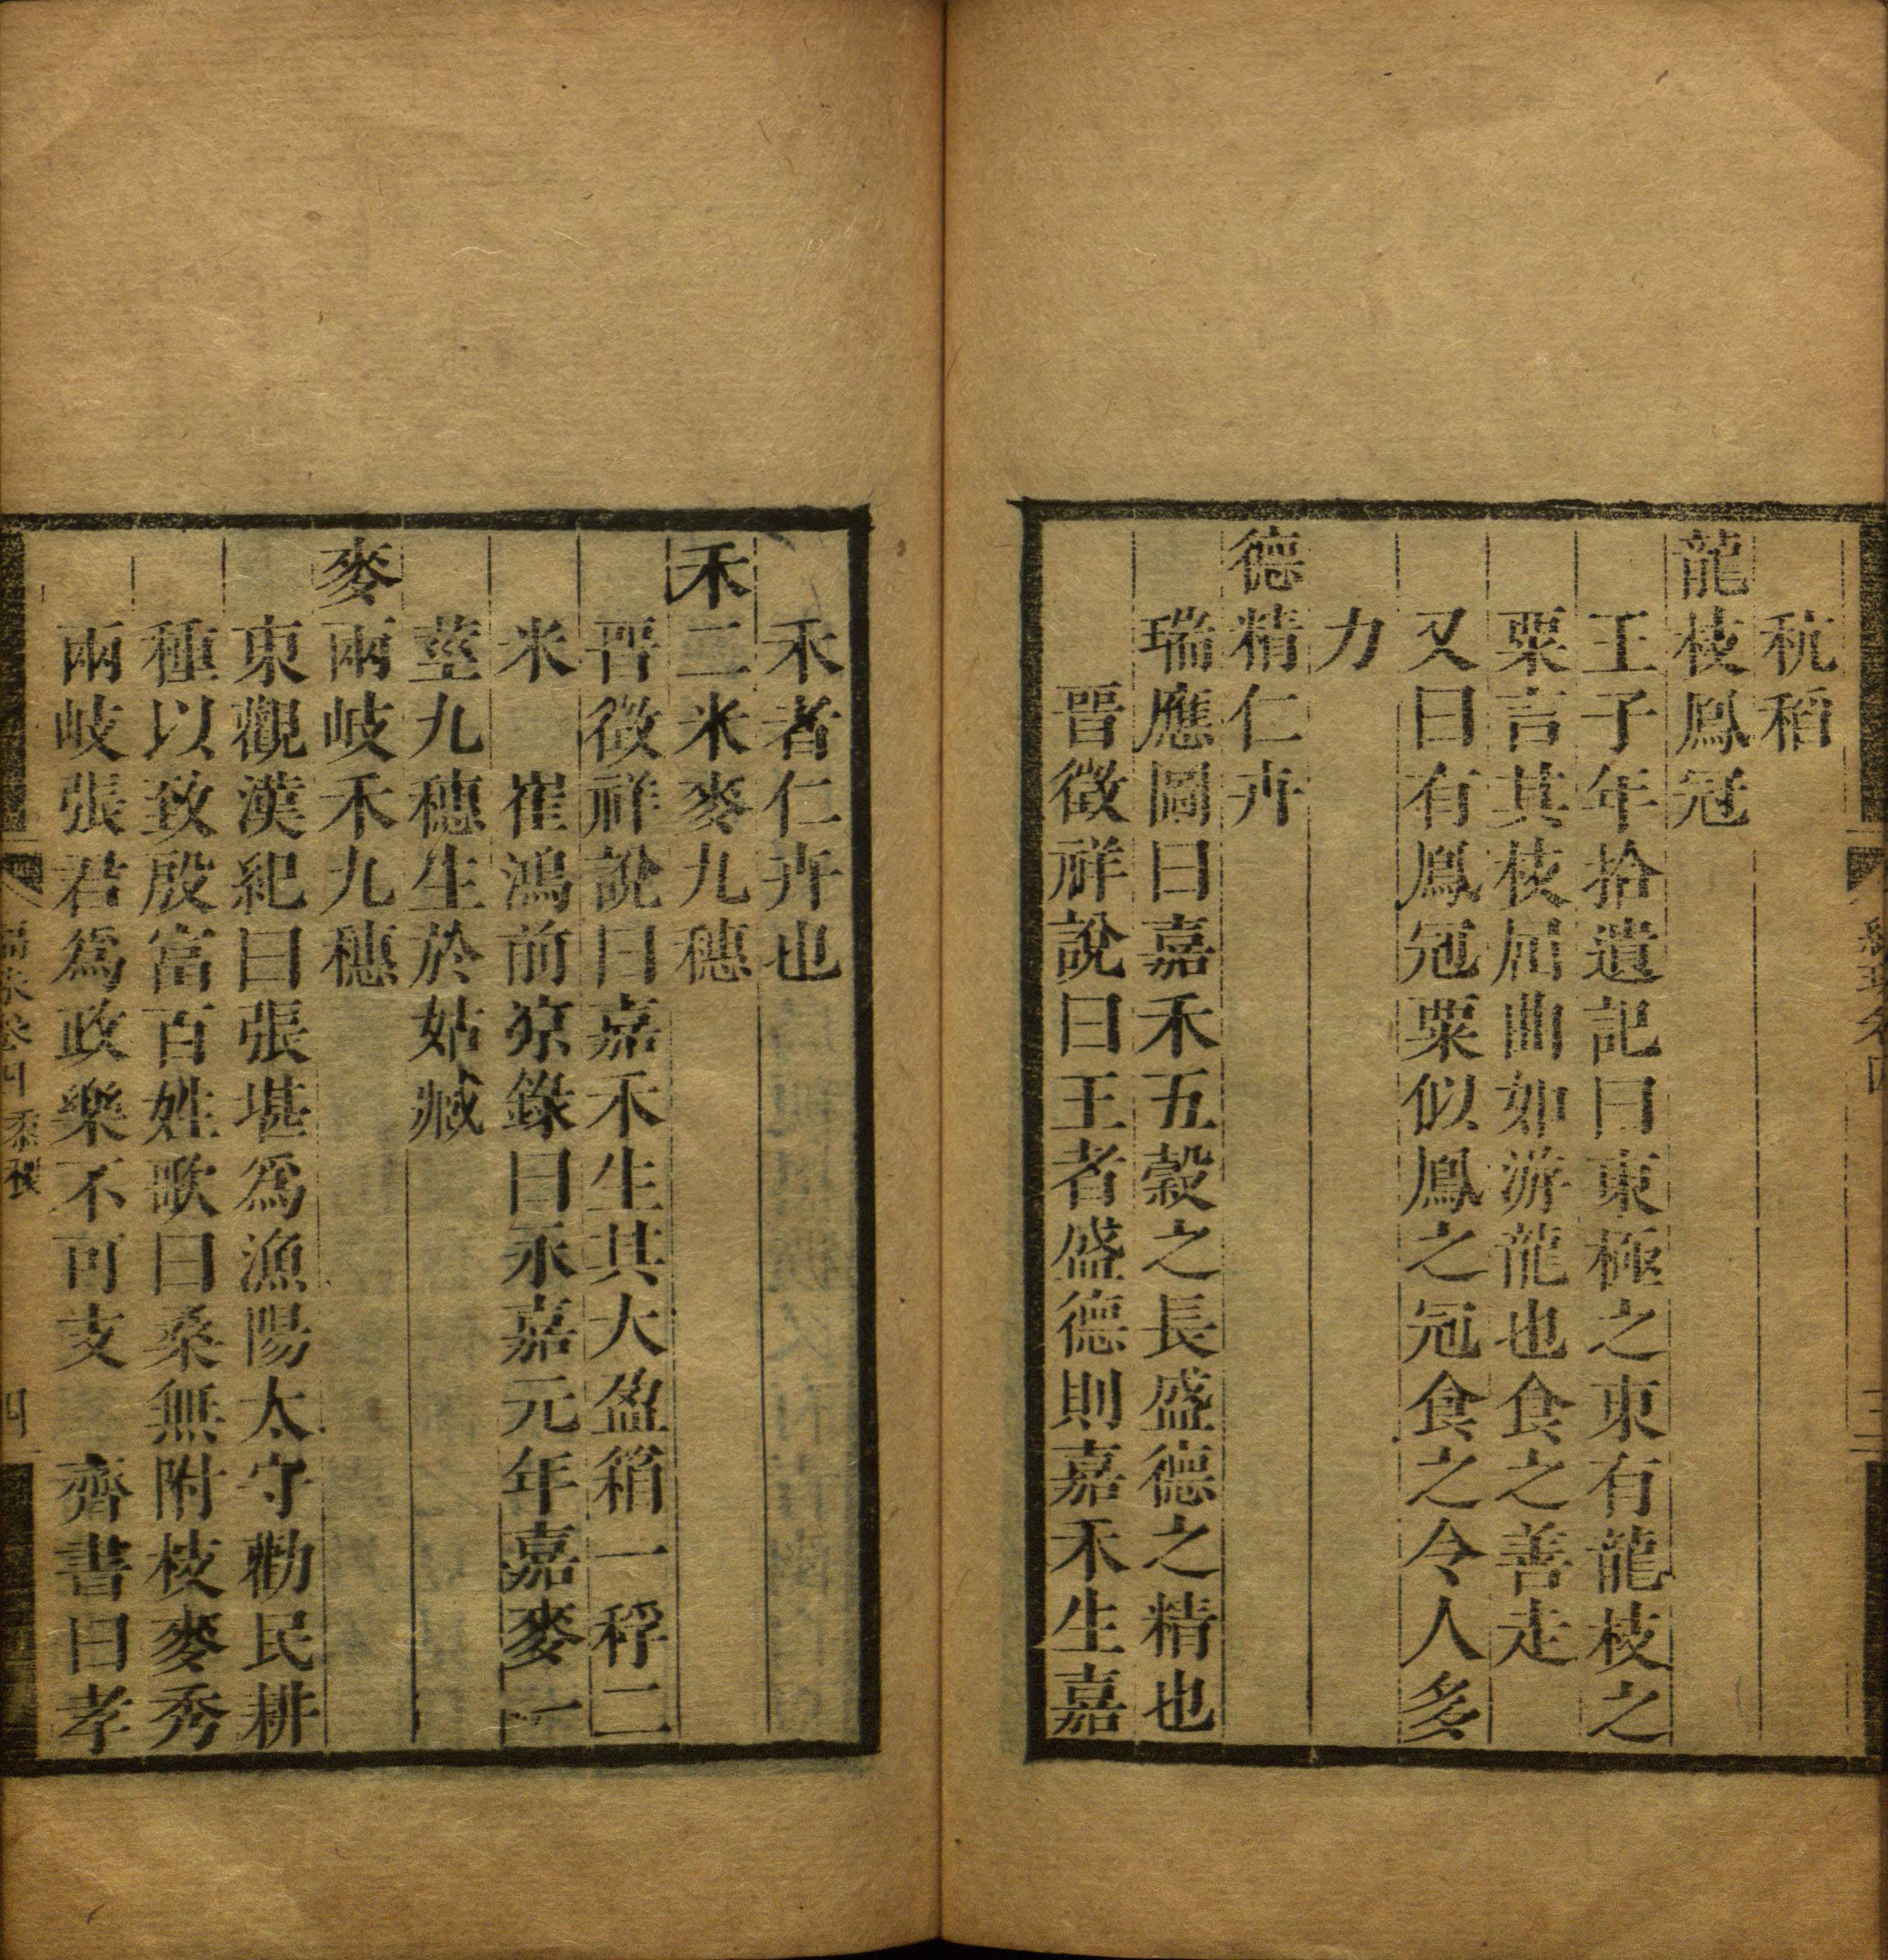 秔稻
龍枝鳳冠
王子年拾遺記曰東極之東有龍枝之
粟言其枝屈曲如游龍也食之善走
又曰有鳳冠粟似鳳之冠食之令人多
力
德精仁卉
瑞應圖曰嘉禾五穀之長盛德之精也
晉徵祥說曰王者盛德則嘉禾生嘉
禾者仁卉也
禾二米麥九穗
晉徵祥說曰嘉禾生其大盈箱一稃二
米　崔鴻前涼錄曰永嘉元年嘉麥一
莖九穗生於姑臧
麥兩岐禾九穗
東觀漢紀曰張堪為漁陽太守勸民耕
種以致殷富百姓歌曰桑無附枝麥秀
兩岐張君為政樂不可支　齊書曰孝